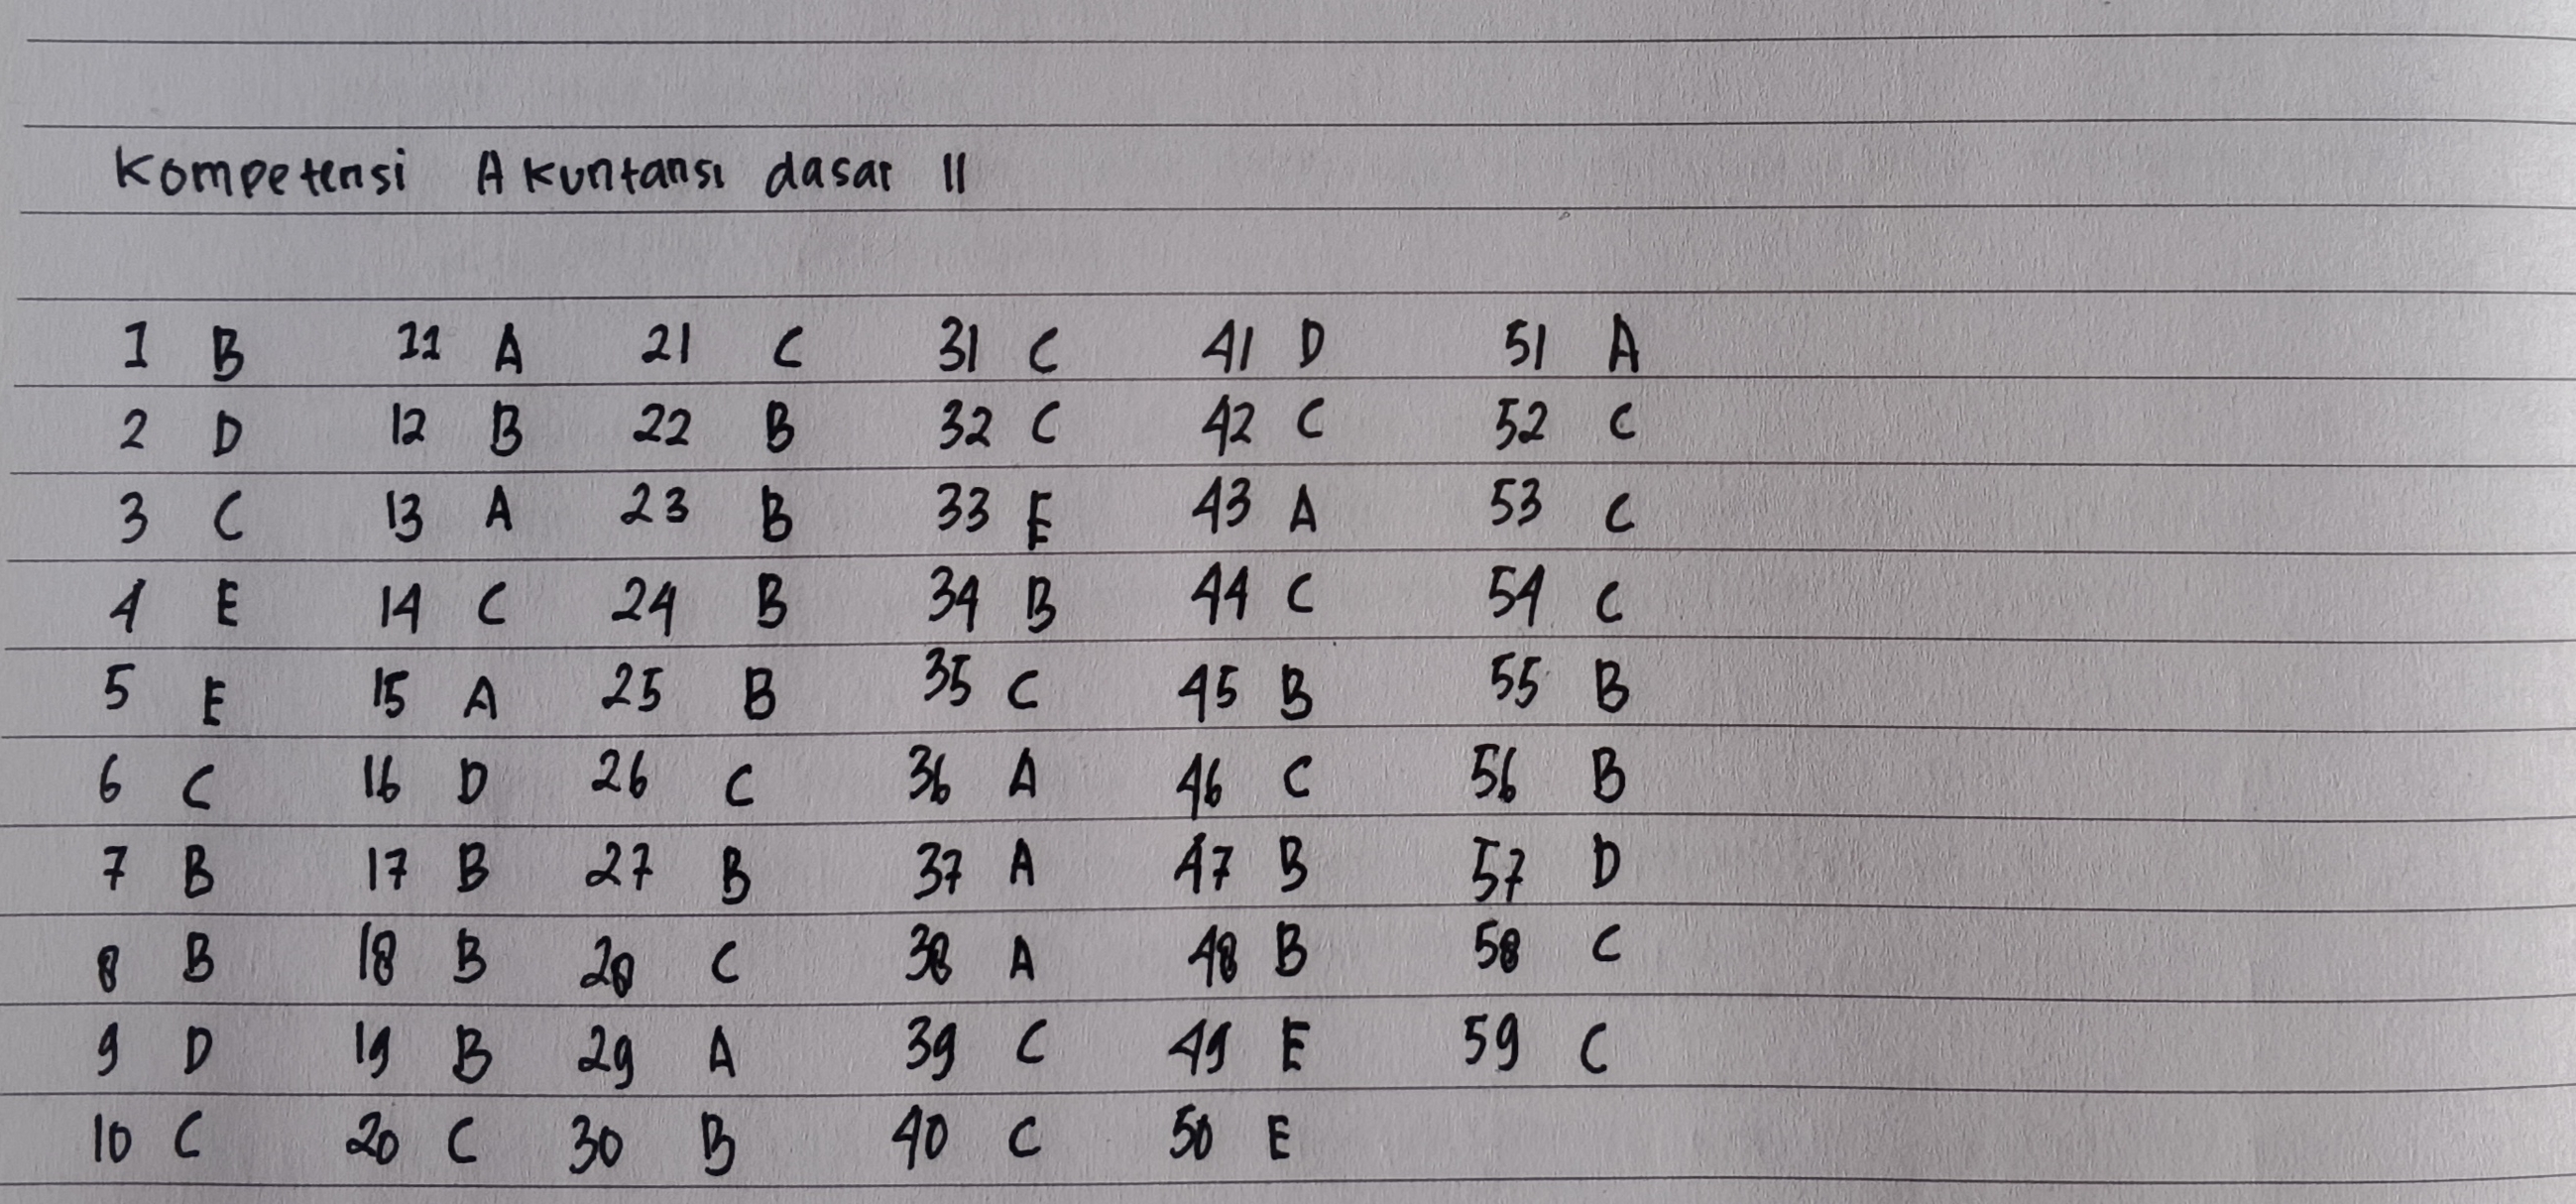 Kompetensi Akuntansi dasar II
1 B 11 A 21 C 31 C 41 D 51 A
2 D 12 B 22 B 32 C 42 C 52 C
3 C 13 A 23 B 33 E 43 A 53 C
4 E 14 C 24 B 34 B 44 C 54 C
5 E 15 A 25 B 35 C 45 B 55 B
6 C 16 D 26 C 36 A 46 C 56 B
7 B 17 B 27 B 37 A 47 B 57 D
8 B 18 B 28 C 38 A 48 B 58 C
9 D 19 B 29 A 39 C 49 E 59 C
10 C 20 C 30 B 40 C 50 E